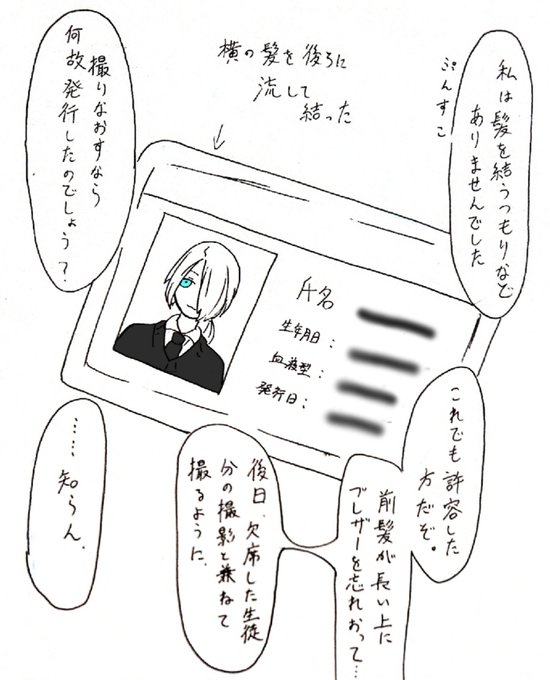 私は髪を結うつもりなど
ありませんでした
ぷんすこ
横の髪を後ろに
流して
結った
撮りなおすなら
何故発行したのでしょう?
氏名
生年月日:
血液型:
発行日:
これでも許容した
方だぞ。
前髪が長い上に
ブレザーを忘れおって…
後日、欠席した生徒
分の撮影と兼ねて
撮るように。
……知らん。